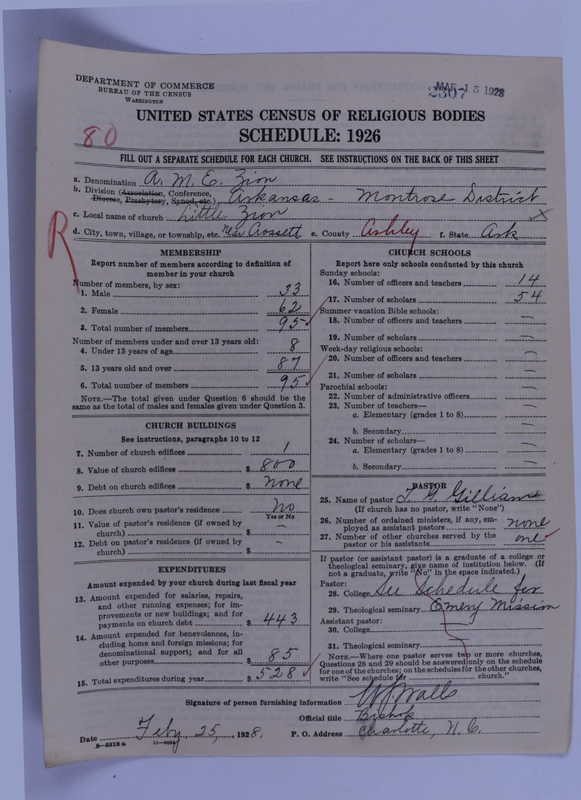 DEPARTMENT OF COMMERCE
BUREAU OF THE CENSUS
WASHINGTON
MAR 15 1928
2307
80
UNITED STATES CENSUS OF RELIGIOUS BODIES
SCHEDULE: 1926
FILL OUT A SEPARATE SCHEDULE FOR EACH CHURCH. SEE INSTRUCTIONS ON THE BACK OF THIS SHEET
a. Denomination A. M. E. Zion
b. Division (Association, Conference, Diocese, Presbytery, Synod, etc.) Arkansas - Montrose District
c. Local name of church Little Zion
d. City, town, village, or township, etc. Crossett e. County Ashley f. State Ark
R
MEMBERSHIP
Report number of members according to definition of
member in your church
Number of members, by sex:
1. Male 33
2. Female 62
3. Total number of members 95
Number of members under and over 13 years old:
4. Under 13 years of age 8
5. 13 years old and over 87
6. Total number of members 95
NOTE.—The total given under Question 6 should be the
same as the total of males and females given under Question 3.
CHURCH BUILDINGS
See instructions, paragraphs 10 to 12
7. Number of church edifices 1
8. Value of church edifices $ 800
9. Debt on church edifices $ none
10. Does church own pastor's residence No
Yes or No
11. Value of pastor's residence (if owned by
church) $ —
12. Debt on pastor's residence (if owned by
church) $ —
EXPENDITURES
Amount expended by your church during last fiscal year
13. Amount expended for salaries, repairs,
and other running expenses; for im-
provements or new buildings; and for
payments on church debt $ 443
14. Amount expended for benevolences, in-
cluding home and foreign missions; for
denominational support; and for all
other purposes $ 85
15. Total expenditures during year $ 528
CHURCH SCHOOLS
Report here only schools conducted by this church
Sunday schools:
16. Number of officers and teachers 14
17. Number of scholars 54
Summer vacation Bible schools:
18. Number of officers and teachers —
19. Number of scholars —
Week-day religious schools:
20. Number of officers and teachers —
21. Number of scholars —
Parochial schools:
22. Number of administrative officers —
23. Number of teachers—
a. Elementary (grades 1 to 8) —
b. Secondary —
24. Number of scholars—
a. Elementary (grades 1 to 8) —
b. Secondary —
PASTOR
25. Name of pastor T. G. Gilliam
(If church has no pastor, write "None")
26. Number of ordained ministers, if any, em-
ployed as assistant pastors none
27. Number of other churches served by the
pastor or his assistants one
If pastor (or assistant pastor) is a graduate of a college or
theological seminary, give name of institution below. (If
not a graduate, write "No" in the space indicated.)
Pastor:
28. College See Schedule for
29. Theological seminary Emery Mission
Assistant pastor:
30. College
31. Theological seminary
NOTE.—Where one pastor serves two or more churches,
Questions 28 and 29 should be answered only on the schedule
for one of the churches; on the schedules for the other churches,
write "See schedule for church."
Signature of person furnishing information W J Walls
Official title Bishop
Date Feby 25, 1928. P. O. Address Charlotte, N. C.